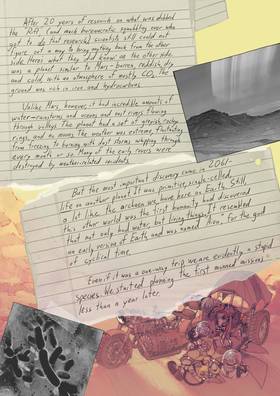 After 20 years of research on what was dubbed
the Rift (and much bureaucratic squabbling over who
got to do that research) scientists still could not
figure out a way to bring anything back from the other
side. Here's what they did know: on the other side
was a planet similar to Mars - barren, reddish, dry
and cold with an atmosphere of mostly CO₂. The
ground was rich in iron and hydrocarbons.
Unlike Mars, however, it had incredible amounts of
water - mountains and oceans and vast rivers flowing
through valleys. The planet had a set of greyish, rocky
rings, and no moons. The weather was extreme, fluctuating
from freezing to burning with dust storms whipping through
every month or so. Many of the early rovers were
destroyed by weather-related incidents.
But the most important discovery came in 2061-
life on another planet. It was primitive, single-celled,
a lot like the archaea we have here on Earth. Still,
this other world was the first humanity had discovered
that not only had water, but living things. It resembled
an early version of Earth, and was named after the god
of cyclical time.
Even if it was a one-way trip we are evidently a stupid
species. We started planning the first manned missions
less than a year later.